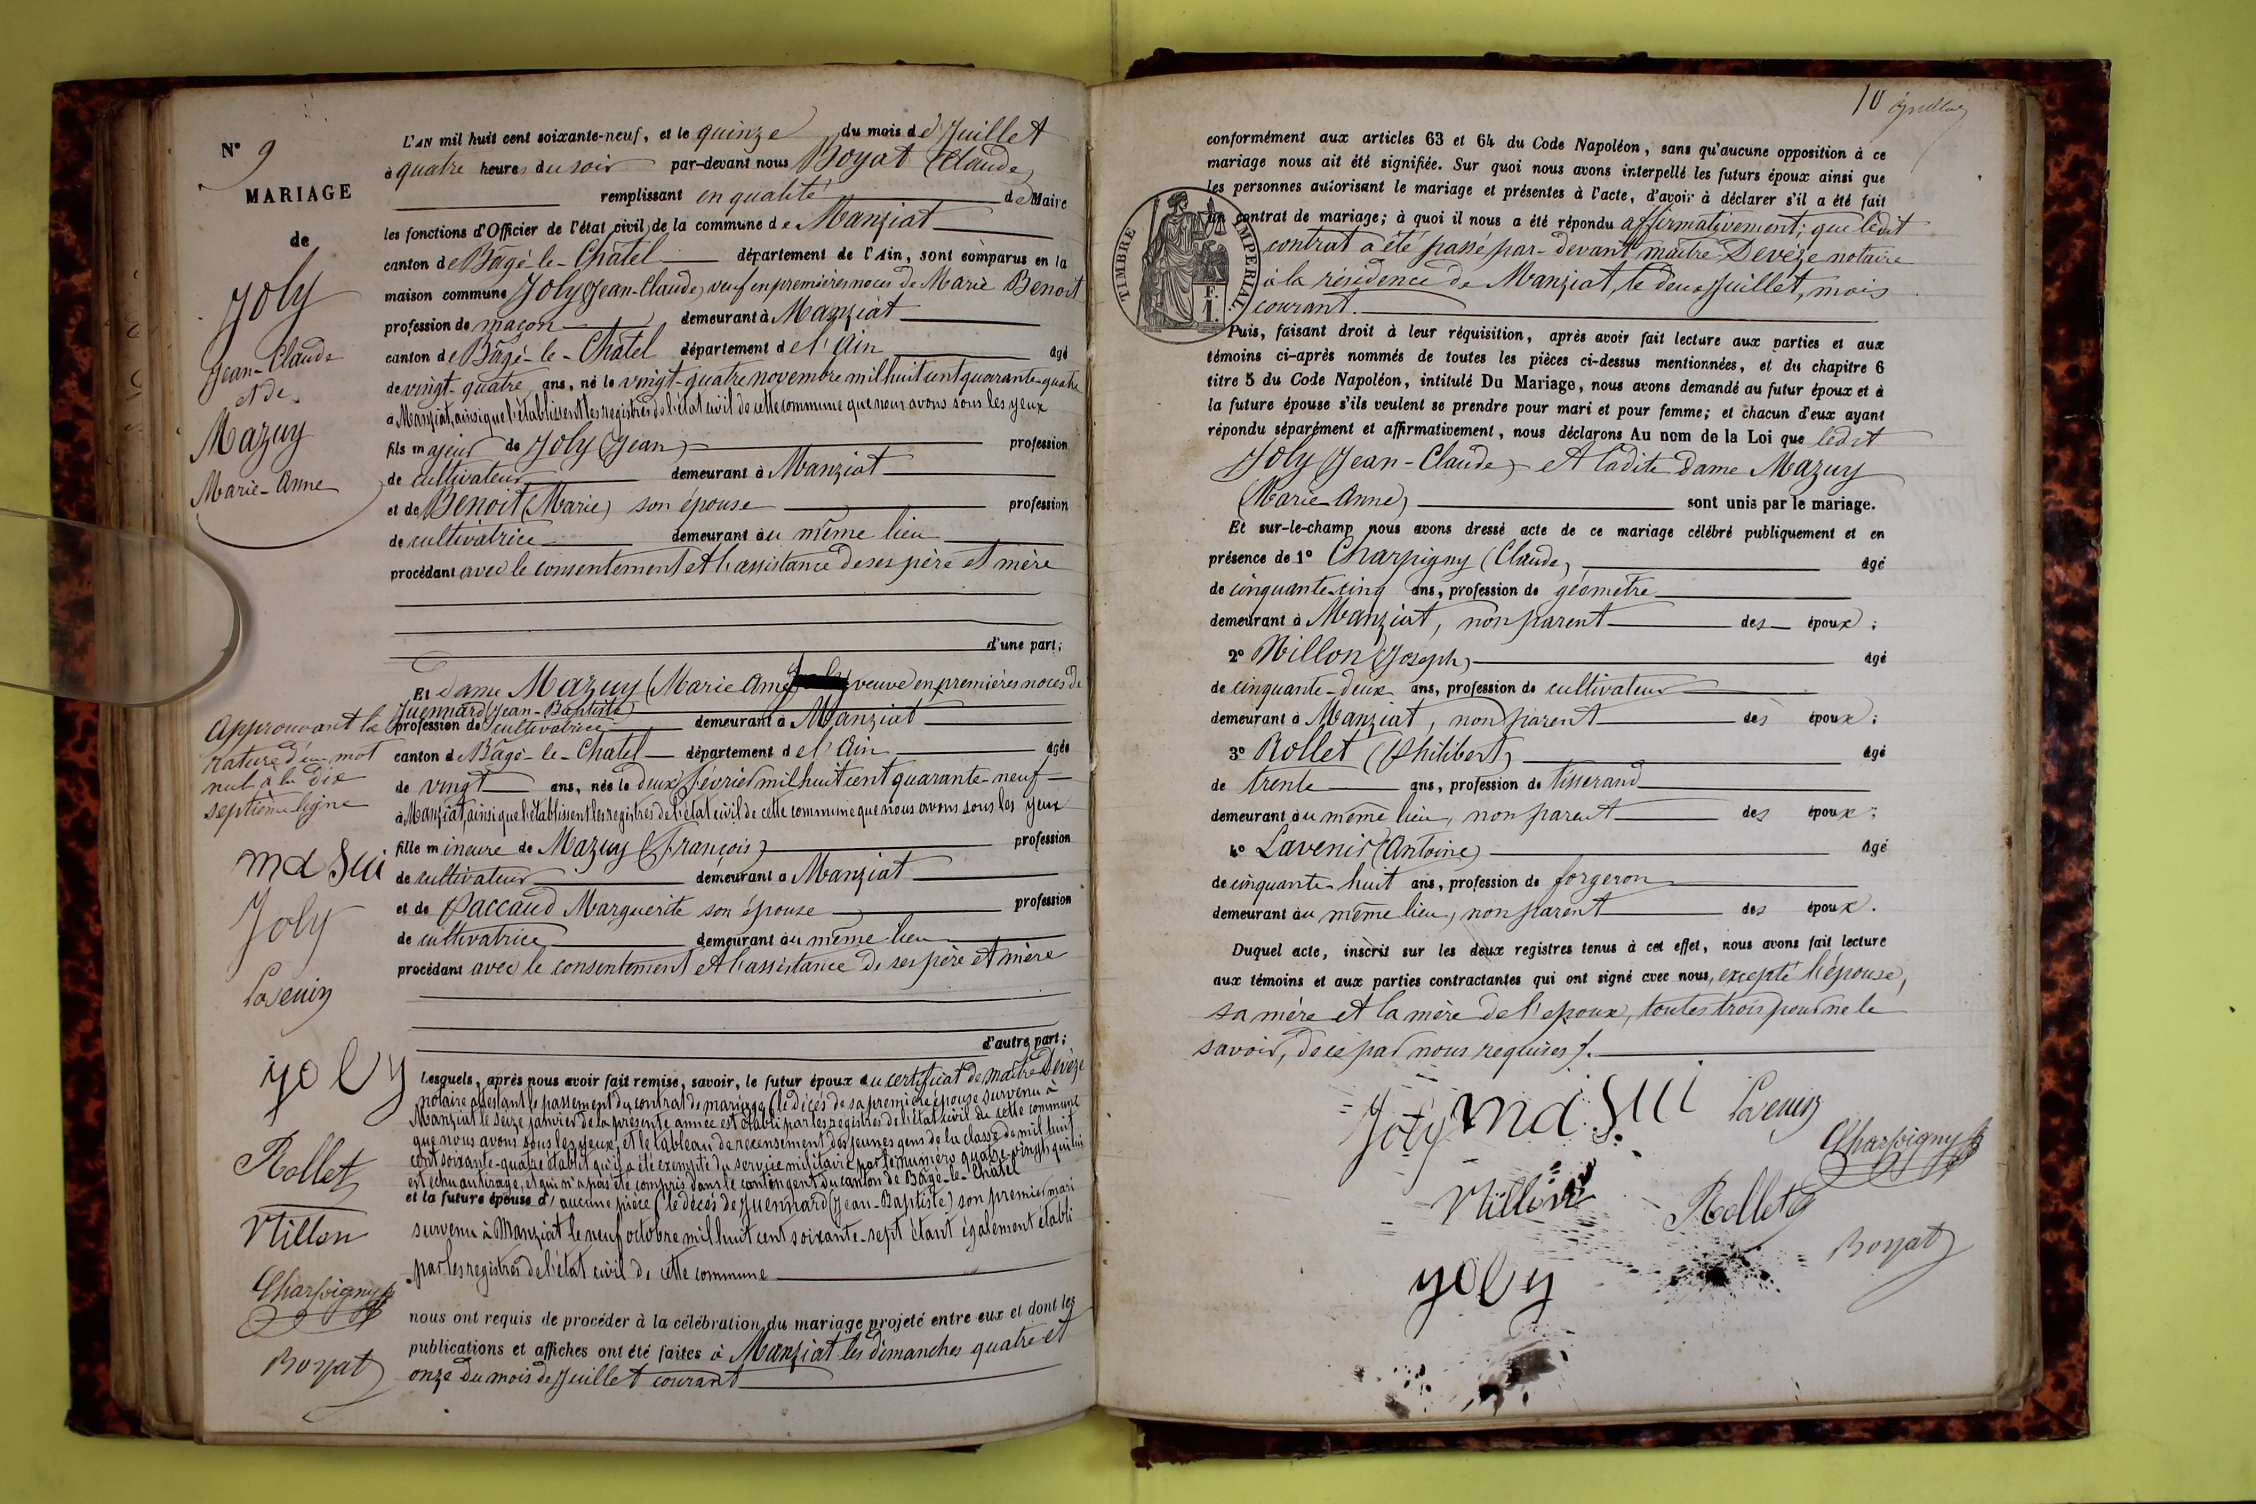 N° 9
MARIAGE
de
Joly
Jean-Claude
et de
Mazuy
Marie-Anne
L'AN mil huit cent soixante-neuf, et le quinze du mois de Juillet
à quatre heures du soir par-devant nous Boyat (Claude)
remplissant en qualité de Maire
les fonctions d'Officier de l'état civil de la commune de Manziat
canton de Bâgé-le-Châtel département de l'Ain, sont comparus en la
maison commune Joly (Jean-Claude) veuf en premières noces de Marie Benoit
profession de maçon demeurant à Manziat
canton de Bâgé-le-Châtel département de l'Ain âgé
de vingt-quatre ans, né le vingt-quatre novembre mil huit cent quarante-quatre
à Manziat, ainsi que l'établissent les registres de l'état civil de cette commune que nous avons sous les yeux
fils majeur de Joly (Jean) profession
de cultivateur demeurant à Manziat
et de Benoit (Marie) son épouse profession
de cultivatrice demeurant au même lieu
procédant avec le consentement et l'assistance de ses père et mère
d'une part;
Et Dame Mazuy (Marie Anne) veuve en premières noces de
Juennard (Jean-Baptiste)
profession de cultivatrice demeurant à Manziat
canton de Bâgé-le-Châtel département de l'Ain âgée
de vingt ans, née le deux février mil huit cent quarante-neuf
à Manziat, ainsi que l'établissent les registres de l'état civil de cette commune que nous avons sous les yeux
fille mineure de Mazuy (François) profession
de cultivateur demeurant à Manziat
et de Paccaud Marguerite son épouse profession
de cultivatrice demeurant au même lieu
procédant avec le consentement et l'assistance de ses père et mère
d'autre part;
Lesquels, après nous avoir fait remise, savoir, le futur époux du certificat de maître Devèze
notaire attestant le passement du contrat de mariage (le décès de sa première épouse survenu à
Manziat le seize janvier de la présente année est établi par les registres de l'état civil de cette commune
que nous avons sous les yeux, et le tableau de recensement des jeunes gens de la classe de mil huit
cent soixante-quatre établit qu'il a été exempté du service militaire par le numéro quatre-vingts qui lui
est échu au tirage, et qui n'a pas été compris dans le contingent du canton de Bâgé-le-Châtel
et la future épouse d'aucune pièce (le décès de Juennard (Jean-Baptiste) son premier mari
survenu à Manziat le neuf octobre mil huit cent soixante-sept étant également établi
par les registres de l'état civil de cette commune
nous ont requis de procéder à la célébration du mariage projeté entre eux et dont les
publications et affiches ont été faites à Manziat les dimanches quatre et
onze du mois de Juillet courant
Approuvant la
rature d'un mot
nul à la dix
septième ligne
masui
Joly
Lavenir
yoly
Rollet
Nillon
Charpigny
Boyat
10
conformément aux articles 63 et 64 du Code Napoléon, sans qu'aucune opposition à ce
mariage nous ait été signifiée. Sur quoi nous avons interpellé les futurs époux ainsi que
les personnes autorisant le mariage et présentes à l'acte, d'avoir à déclarer s'il a été fait
un contrat de mariage; à quoi il nous a été répondu affirmativement; que ledit
contrat a été passé par-devant maître Devèze notaire
à la résidence de Manziat, le deux Juillet, mois
courant.
TIMBRE IMPERIAL
F.
1.
Puis, faisant droit à leur réquisition, après avoir fait lecture aux parties et aux
témoins ci-après nommés de toutes les pièces ci-dessus mentionnées, et du chapitre 6
titre 5 du Code Napoléon, intitulé Du Mariage, nous avons demandé au futur époux et à
la future épouse s'ils veulent se prendre pour mari et pour femme; et chacun d'eux ayant
répondu séparément et affirmativement, nous déclarons Au nom de la Loi que ledit
Joly (Jean-Claude) et ladite dame Mazuy
(Marie Anne) sont unis par le mariage.
Et sur-le-champ nous avons dressé acte de ce mariage célébré publiquement et en
présence de 1° Charpigny (Claude) âgé
de cinquante-cinq ans, profession de géomètre
demeurant à Manziat, non parent des époux;
2° Nillon (Joseph) âgé
de cinquante-deux ans, profession de cultivateur
demeurant à Manziat, non parent des époux;
3° Rollet (Philibert) âgé
de trente ans, profession de tisserand
demeurant au même lieu, non parent des époux;
4° Lavenir (Antoine) âgé
de cinquante-huit ans, profession de forgeron
demeurant au même lieu, non parent des époux.
Duquel acte, inscrit sur les deux registres tenus à cet effet, nous avons fait lecture
aux témoins et aux parties contractantes qui ont signé avec nous, excepté l'épouse,
sa mère et la mère de l'époux, toutes trois pour ne le
savoir, de ce par nous requises.
Joly masui Lavenir
Charpigny
Nillon Rollet
Boyat
yoly